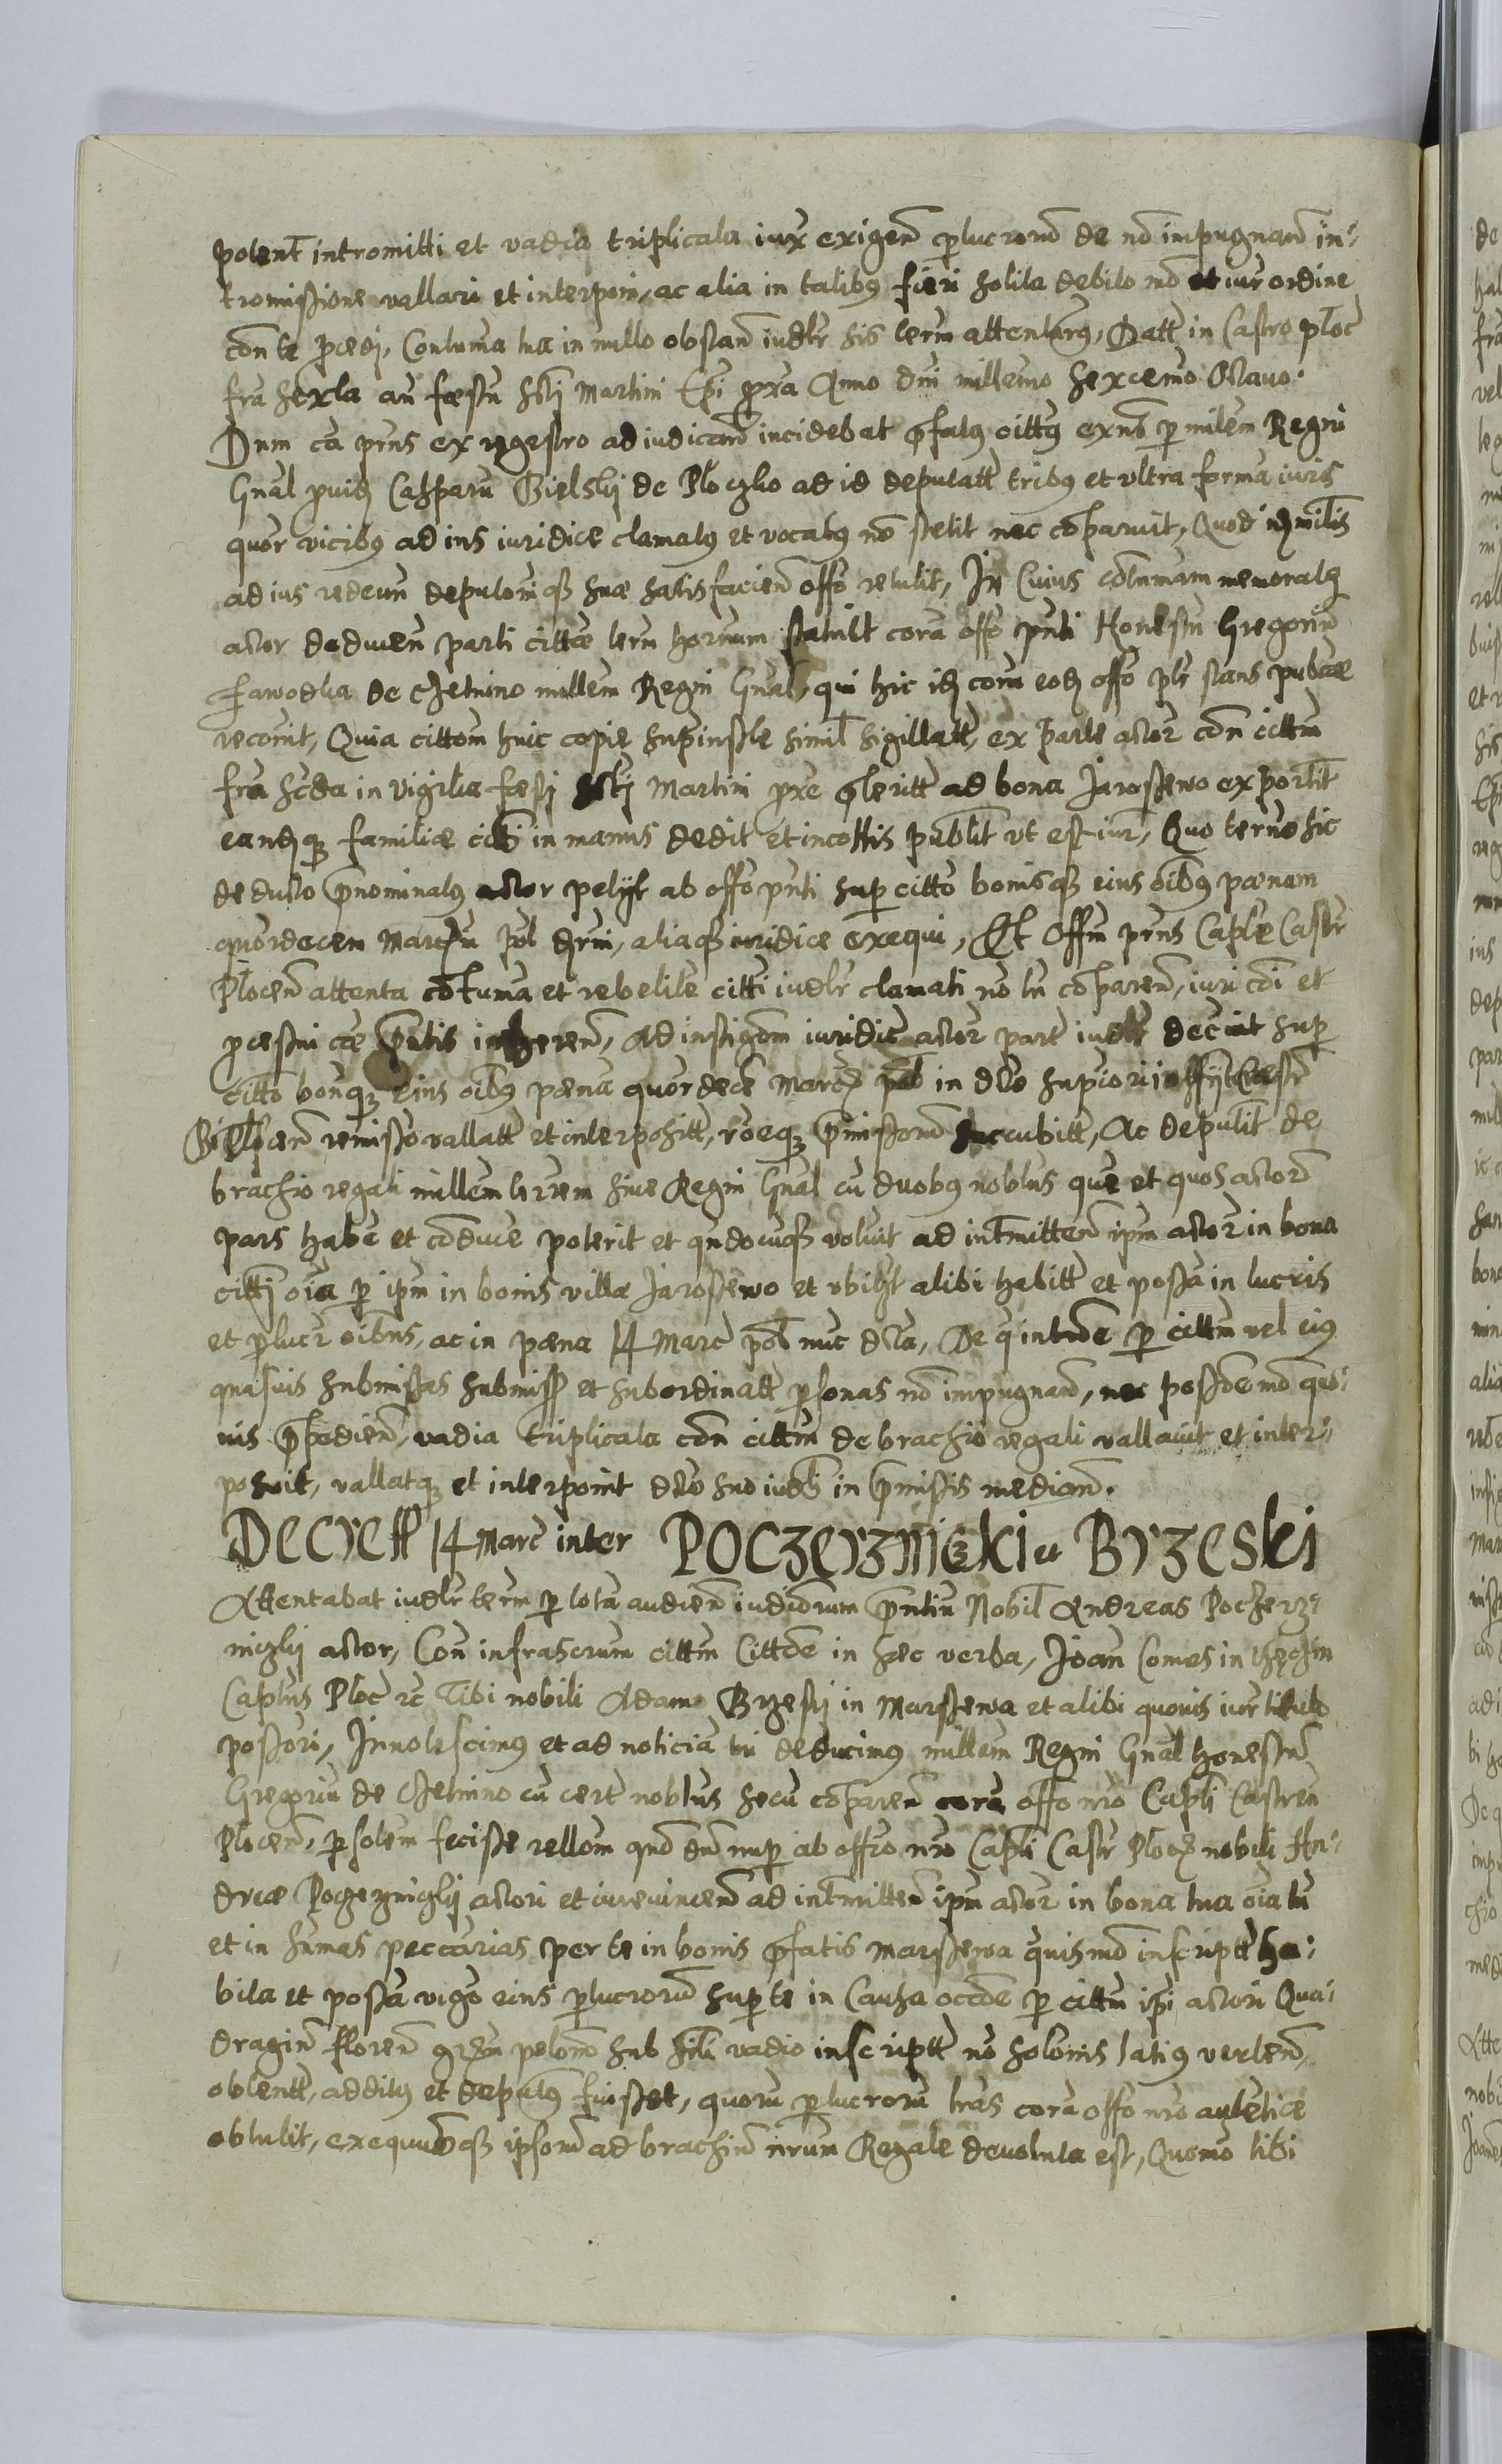 potent intromitti et vadia triplicata iux exigen perlucrorum de no impugnand in-
tromissione vallari et interponi, ac alia in talibus fieri solita debito mo et iur ordine
con te procedi, Contuma tua in nullo obstan iudlr his term attenturus, Datt in Castro Ploc
fra sexta an festum scti Martini Epi prox Anno dni millemo sexcemo Octauo.
Dum ca pnns ex regestro ad iudicand incidebat prefatus cittus exns per milem Regni
Gnal prouid Casparu Bielski de Ploczko ad id deputatt tribus et vltra forma iuris
quor vicibus ad ius iuridice clamatus et vocatus no stetit nec comparuit, Quod idem milis
ad ius redeun deputoniq suae satisfacien offo retulit, In Cuius contumam memoratus
actor deducen parti cittae term hornum statuit cora offo pnti Honestu Gregoriu
Fawodka de Czetnino millem Regni Gnal, qui hic idem coram eodem offo plr stans publcae
recouit, Quia cittom huic copie suprinste simil sigillatt, ex parte actor con cittm
fra scda in vigilia festi scti Martini prox pretritt ad bona Jaroszewo exportit
eandq familiae citti in manus dedit et incottis publit vt est iur, Quo termo sic
deducto prenominatus actor petyt ab offo pnti super citto bonisq eius oibus paenam
quordecem Marcru pol drui, aliaq iuridice exequi, Et Offm pnns Caplae Castr
Plocen attenta contuma et rebelite citti iudlr clamati no tn comparen, iuri coi et
processui cae pntis inheren, Ad instigom iuridic actor part iudlr decint super
citto bonqz eius oibus paena quordece Marc pol in dcto superiori offy Castr
Plocen remisso vallatt et interpositt, roeqz premissorum succubitt, Ac deputit de
brachio regali millem terrem siue Regni Gnal cu duobus noblus que et quos actor
pars habe et conduce poterit et qndocuq voluit ad intmitten ipm actor in bona
citti oia per ipm in bonis villae Jaroszewo et vbilt alibi habitt et possa in lucris
et perlucr oibus, ac in paena 14 Marc pol nuc dcta, De qua intrde per cittm vel eius
quasuis submissas submiss et subordinatt personas no impugnand, nec possdem mo quo-
uis prepedien, vadia triplicata con cittm de brachio regali vallauit et inter-
posuit, vallatq et interponit dcto suo iudli in premissis median.
Decrett 14 Marc inter Poczerzniczki et Brzeski
Attentabat iudlr term per tota audien iudiciorum pntiu Nobil Andreas Poczerz-
niczky actor, Con infrascrum cittm Cittde in haec verba, Joan Comes in Tęczin
Captus Ploc rc Tibi nobili Adamo Brzesky in Marszewa et alibi quouis iur titulo
possori, Innotescimus et ad noticia tui deducimus millem Regni Gnal honestu
Gregoriu de Czetnino cu cert noblus secu comparen cora offo nro Capli Castren
Plocen, persolem fecisse rellom quo dn nuper ab offo nro Capli Castr Ploc nobili An-
dreae Poczerzniczky actori et iureuincen ad intmitten ipm actor in bona tua oia tn
et in sumas peccuarias per te in bonis prefatis Marszewa quismo inscriptt ha-
bita et possa vigo eius perlucrorum super te in Causa occde per cittm ipi actori Qua-
dragin floren grm polon sub sili vadio inscriptt no solonis latius verten,
obtentt, additus et deputus fuisset, quoru perlucroru lras cora offo nro autetice
obtulit, exequuoq ipsoru ad brachiu nrum Regale devoluta est, Quomo tibi